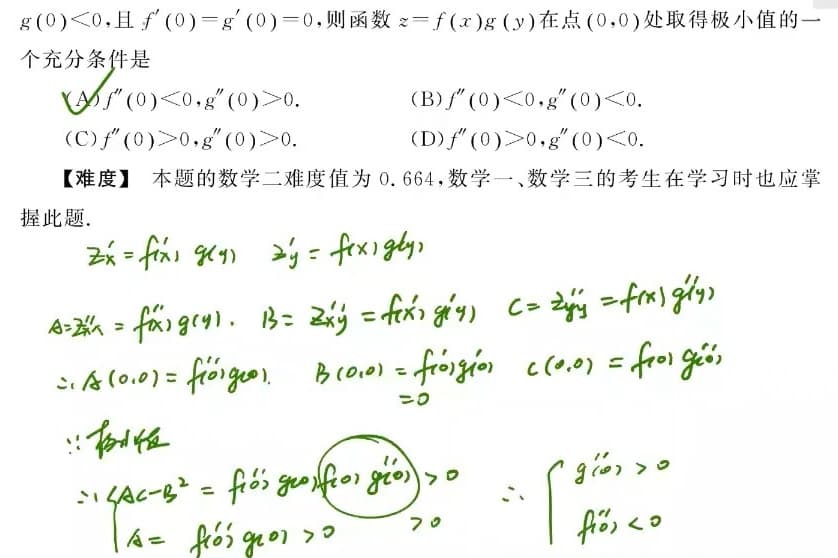 g(0)<0,且 f′(0)=g′(0)=0,则函数 z=f(x)g(y)在点(0,0)处取得极小值的一
个充分条件是
(A)f″(0)<0,g″(0)>0. (B)f″(0)<0,g″(0)<0.
(C)f″(0)>0,g″(0)>0. (D)f″(0)>0,g″(0)<0.
【难度】 本题的数学二难度值为 0.664,数学一、数学三的考生在学习时也应掌
握此题.
z′x = f′(x) g(y) z′y = f(x) g′(y)
A = z″xx = f″(x) g(y). B = z″xy = f′(x) g′(y) C = z″yy = f(x) g″(y)
∴ A(0,0) = f″(0) g(0). B(0,0) = f′(0) g′(0) C(0,0) = f(0) g″(0)
=0
∵ 极小值
∴ { AC-B² = f″(0) g(0) f(0) g″(0) > 0 ∴ { g″(0) > 0
A = f″(0) g(0) > 0 >0 f″(0) < 0